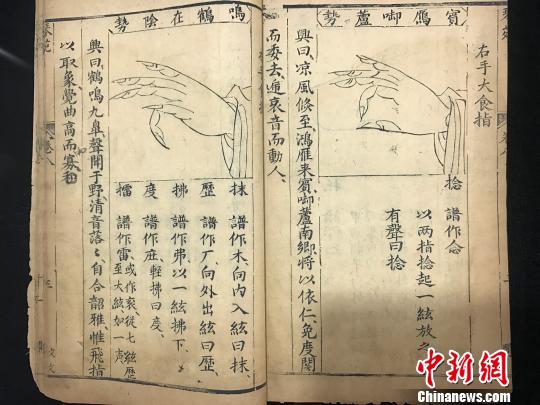 右手大食指
賓鴈啣蘆勢
捻 譜作念
以兩指捻起一絃放之
有聲曰捻
興曰凉風倏至鴻雁来賓啣蘆南鄉將以依仁免度關
而委去遞哀音而動人
鳴鶴在陰勢
抹 譜作木向内入絃曰抹
歷 譜作厂向外出絃曰歷
拂 譜作弗以一絃拂下
度 譜作庄輕拂曰度
擂 譜作雷或作袞從七絃歷至大絃如一聲
興曰鶴鳴九臯聲聞于野清音落〻自合韶雅惟飛指
以取象覺曲高而寡
卷八
中新网
www.chinanews.com